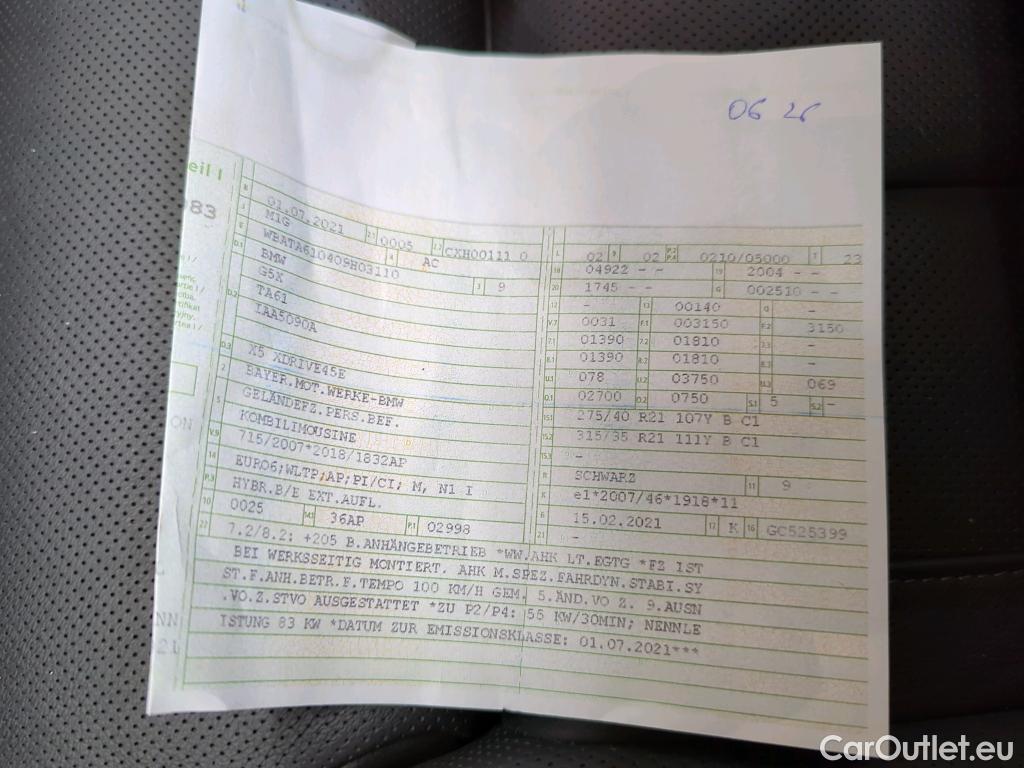 06 26
eil I
083
B 01.07.2021 2.1 0005 2.2 CXH00111 0
J M1G 4 AC
E WBATA610409H03110 3 9
D.1 BMW
D.2 G5X
TA61
1AA5090A
D.3 X5 XDRIVE45E
2 BAYER.MOT.WERKE-BMW
5 GELÄNDEFZ.PERS.BEF.
KOMBILIMOUSINE
V.9 715/2007*2018/1832AP
14 EURO6;WLTP;AP;PI/CI; M, N1 I
P.3 HYBR.B/E EXT.AUFL.
10 0025 14.1 36AP P.1 02998
L 02 9 02 P.2 P.4 0210/05000 T 23
18 04922 - - 19 2004 - -
20 1745 - - G 002510 - -
12 - 13 00140 Q -
V.7 0031 F.1 003150 F.2 3150
7.1 01390 7.2 01810 7.3 -
8.1 01390 8.2 01810 8.3 -
U.1 078 U.2 03750 U.3 069
O.1 02700 O.2 0750 S.1 5 S.2 -
15.1 275/40 R21 107Y B C1
15.2 315/35 R21 111Y B C1
15.3 -
R SCHWARZ 11 9
K e1*2007/46*1918*11
6 15.02.2021 17 K 16 GC525399
21 -
22 7.2/8.2: +205 B.ANHÄNGEBETRIEB *WW.AHK LT.EGTG *FZ IST
BEI WERKSSEITIG MONTIERT. AHK M.SPEZ.FAHRDYN.STABI.SY
ST.F.ANH.BETR.F.TEMPO 100 KM/H GEM. 5.ÄND.VO Z. 9.AUSN
.VO.Z.STVO AUSGESTATTET *ZU P2/P4: 55 KW/30MIN; NENNLE
ISTUNG 83 KW *DATUM ZUR EMISSIONSKLASSE: 01.07.2021***
ON
NN
21
CarOutlet.eu